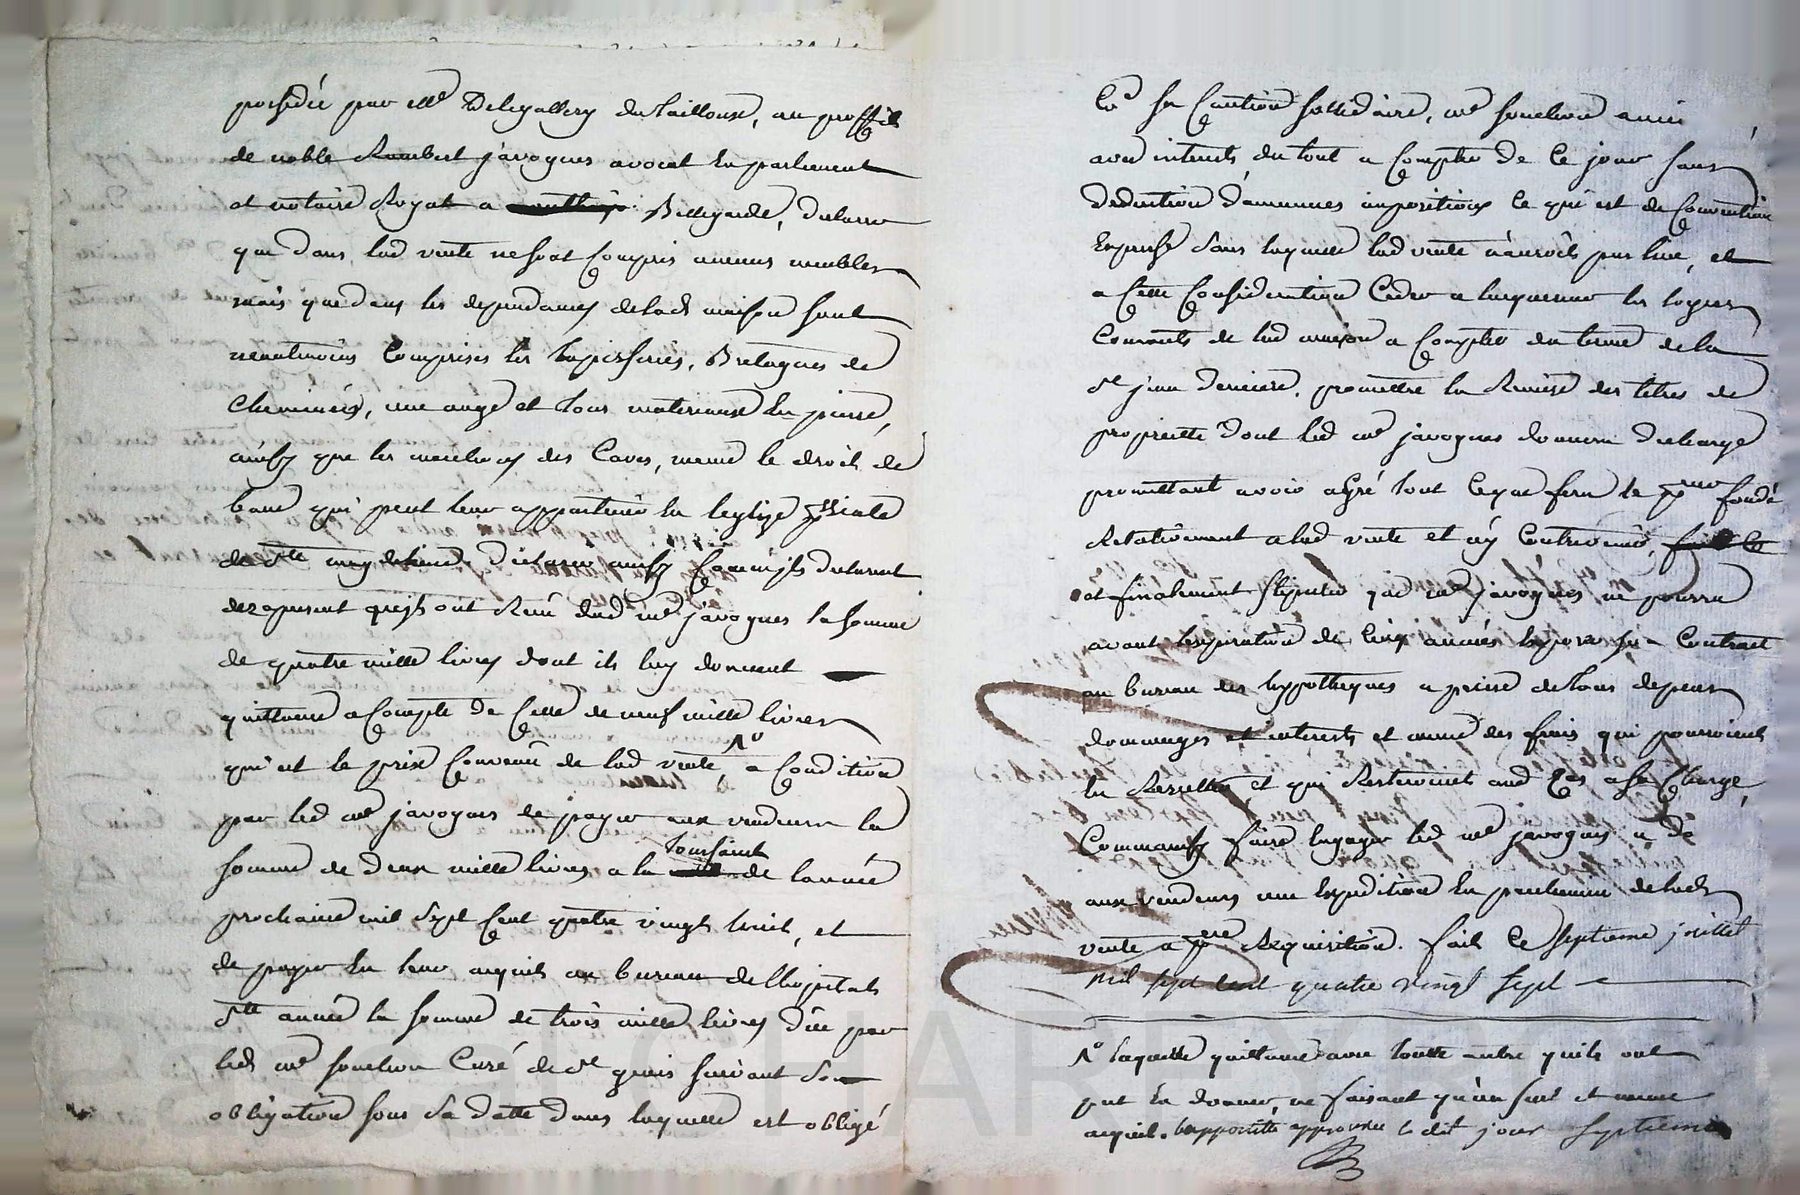 possédée par Mr Delegallery du Taillouse, au proffit
de noble Rambert javogues avocat En parlement
et notaire Royal a Bellegarde, declarer
que dans lad vente ne sont Compris aucuns meubles
mais que dans les dependances de lad maison sont
neantmoins Comprises les tapisseries, Bretagnes de
Cheminées, une auge et tous materiaux En pierre,
ainsy que les des Caves, meme le droit de
banc qui peut leur appartenir En leglise
de Ste magdelaine, declarer ainsy Comm'ils declarent
des apresent quejls ont Reçu dud me javogues la somme
de quatre mille livres dont ils luy donnent
quittance a Compte de Celle de neuf mille livres
qui est le prix Convenu de lad vente, No a Condition
par led me javogues de payer aux vendeurs la
somme de deux mille livres a la toussaint de lannée
prochaine mil Sept Cent quatre vingt huit, et
de payer En leur acquit au bureau de Lhopital
dte année la somme de trois mille livres düe par
led me souchon Curé de St suivant Son
obligation sous Sa datte dans laquelle est obligé
Co sa Caution sollidaire, me souchon
avec interets du tout a Compter de Ce jour sans
Deduction D'aucunes impositions Ce qui est de Convention
Expresse Sans laquelle lad vente n'auroit pas lieu, et
a Cette Consideration Ceder a lacquereur les loyers
Courants de lad maison a Compter du terme de la
St jean derniere, promettre la Remise des titres de
propriette dont led me javogues donnera decharge
promettant avoir agré tout Ceque fera le pr fondé
Relativement a lad vente et ny Contrevenir,
et finalement Stipuler que me javogues ne pourra
avant lexpiration de Cinq années Exposer son Contract
au bureau des hypotheques a peine de tous depens
dommages et interets et meme des frais qui pourroient
En Resulter et qui Resteroient aud Cas a Sa Charge,
Comm'aussy faire Engager led me javogues a
aux vendeurs une Expedition En parchemin de lad
vente a pere Requisition. fait Ce Septieme juillet
mil sept cent quatre vingt sept
No laquelle quittance avec toutte autre quils ont
put En donner ne faisant qu'un seul et meme
acquit. Lapostille approuvée le dit jour Septieme